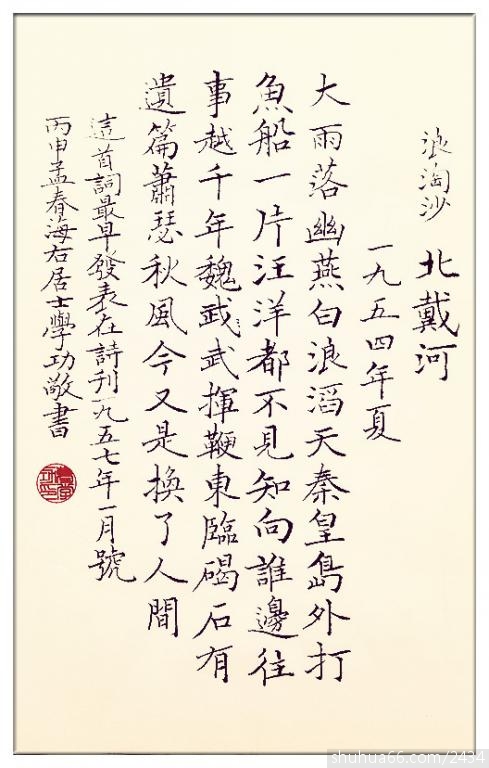 浪淘沙 北戴河
一九五四年夏
大雨落幽燕白浪滔天秦皇島外打
魚船一片汪洋都不見知向誰邊往
事越千年魏武武揮鞭東臨碣石有
遺篇蕭瑟秋風今又是換了人間
這首詞最早發表在詩刊一九五七年一月號
丙申孟春海右居士學功敬書
shuhua66.com/2434